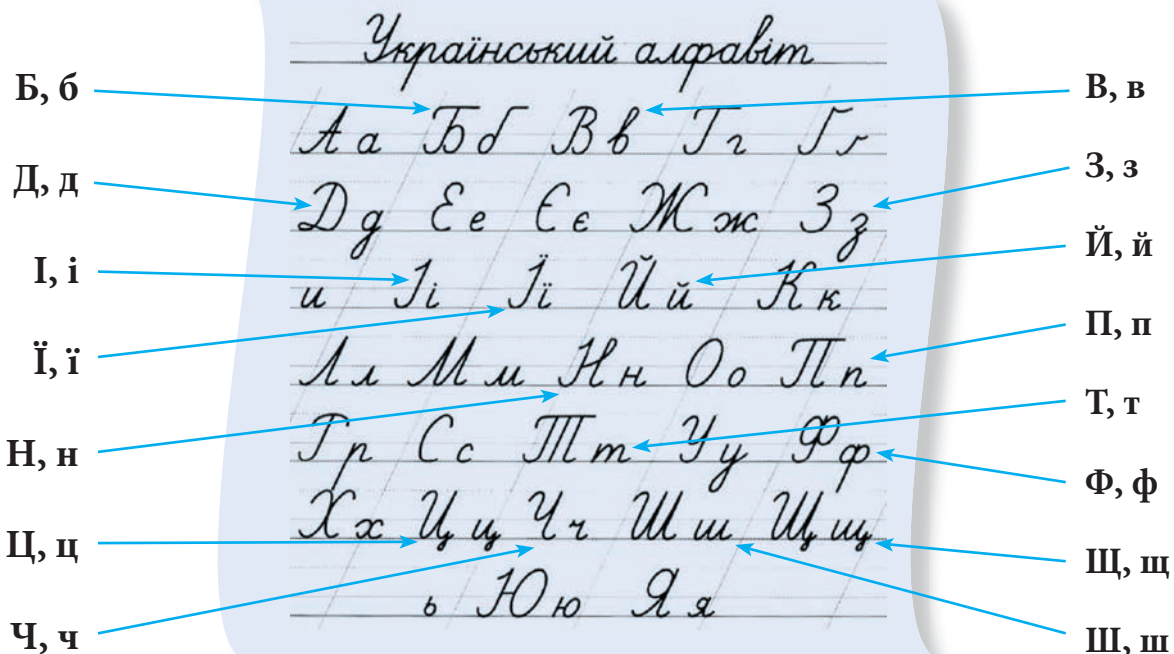 Український алфавіт
Аа Бб Вв Гг Ґґ
Дд Ее Єє Жж Зз
и Іі Її Йй Кк
Лл Мм Нн Оо Пп
Рр Сс Тт Уу Фф
Хх Цц Чч Шш Щщ
ь Юю Яя
Б, б
Д, д
І, і
Ї, ї
Н, н
Ц, ц
Ч, ч
В, в
З, з
Й, й
П, п
Т, т
Ф, ф
Щ, щ
Ш, ш